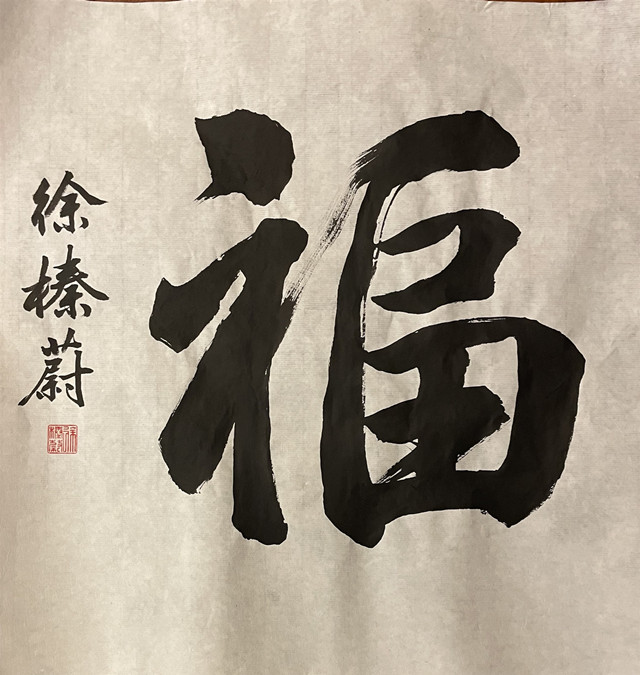 福
徐榛蔚